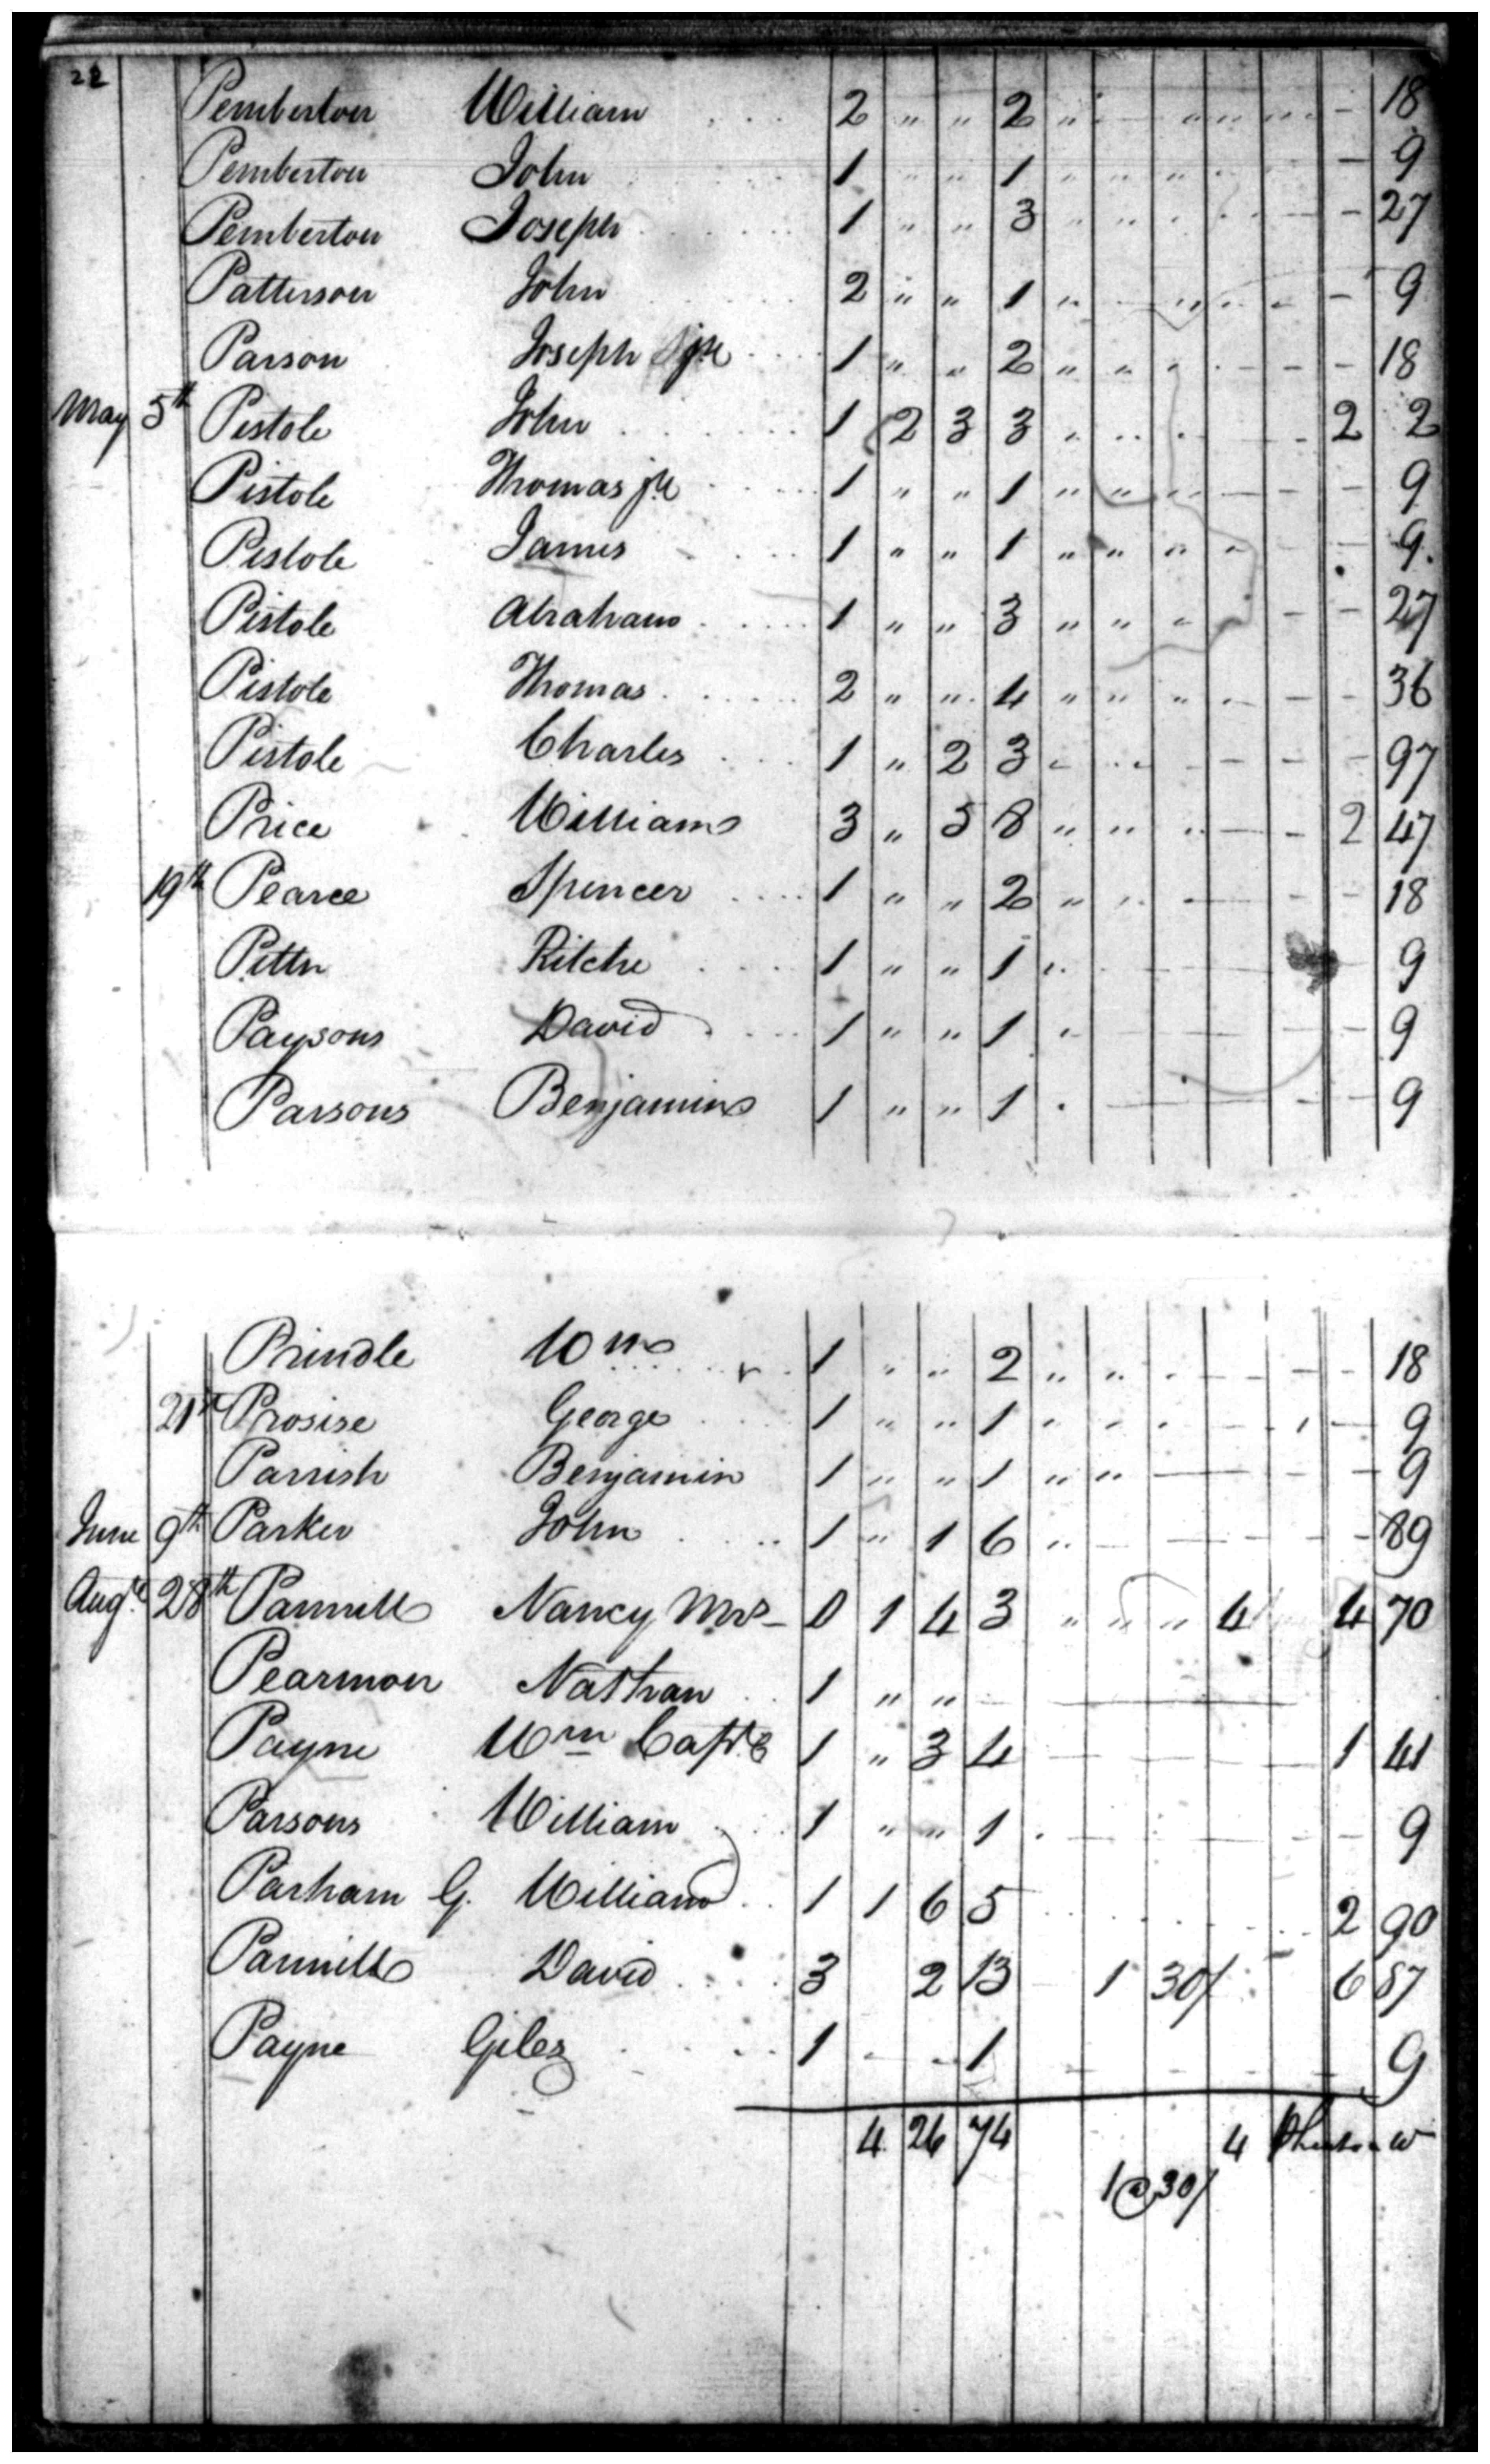 22
Pemberton William 2 " " 2 " - " " " - 18
Pemberton John 1 " " 1 " " " - 9
Pemberton Joseph 1 " " 3 " " - - 27
Patterson John 2 " " 1 " - " - 9
Parson Joseph jr 1 " " 2 " " - - - 18
May 5th Pistole John 1 2 3 3 " " - 2 2
Pistole Thomas jr 1 " " 1 " " " - - - 9
Pistole James 1 " " 1 " " " " - - 9
Pistole Abraham 1 " " 3 " " " - - 27
Pistole Thomas 2 " " 4 " " " - - - 36
Pistole Charles 1 " 2 3 " " - - - - 97
Price William 3 " 5 8 " " " - - 2 47
19th Pearce Spencer 1 " " 2 " " - - - 18
Ritche 1 " " 1 " - - 9
Paysons David 1 " " 1 " - - - 9
Parsons Benjamin 1 " " 1 - - - 9
Prindle Wm 1 " " 2 " " - - - - 18
21st Prosise George 1 " " 1 " " " - - 9
Parrish Benjamin 1 " " 1 " " - - - 9
June 9th Parker John 1 " 1 6 " - - - - 89
Augt 28th Pannill Nancy Mrs - 0 1 4 3 " " " 4 4 70
Pearmon Nathan 1 " " - -
Payne Wm Capt 1 " 3 4 - - - 1 41
Parsons William 1 " " 1 - - - - 9
Parham G. William 1 1 6 5 2 90
Pannill David 3 2 13 1 30/ 6 87
Payne Giles 1 - - 1 - - - 9
4 26 74 4
1 @ 30/